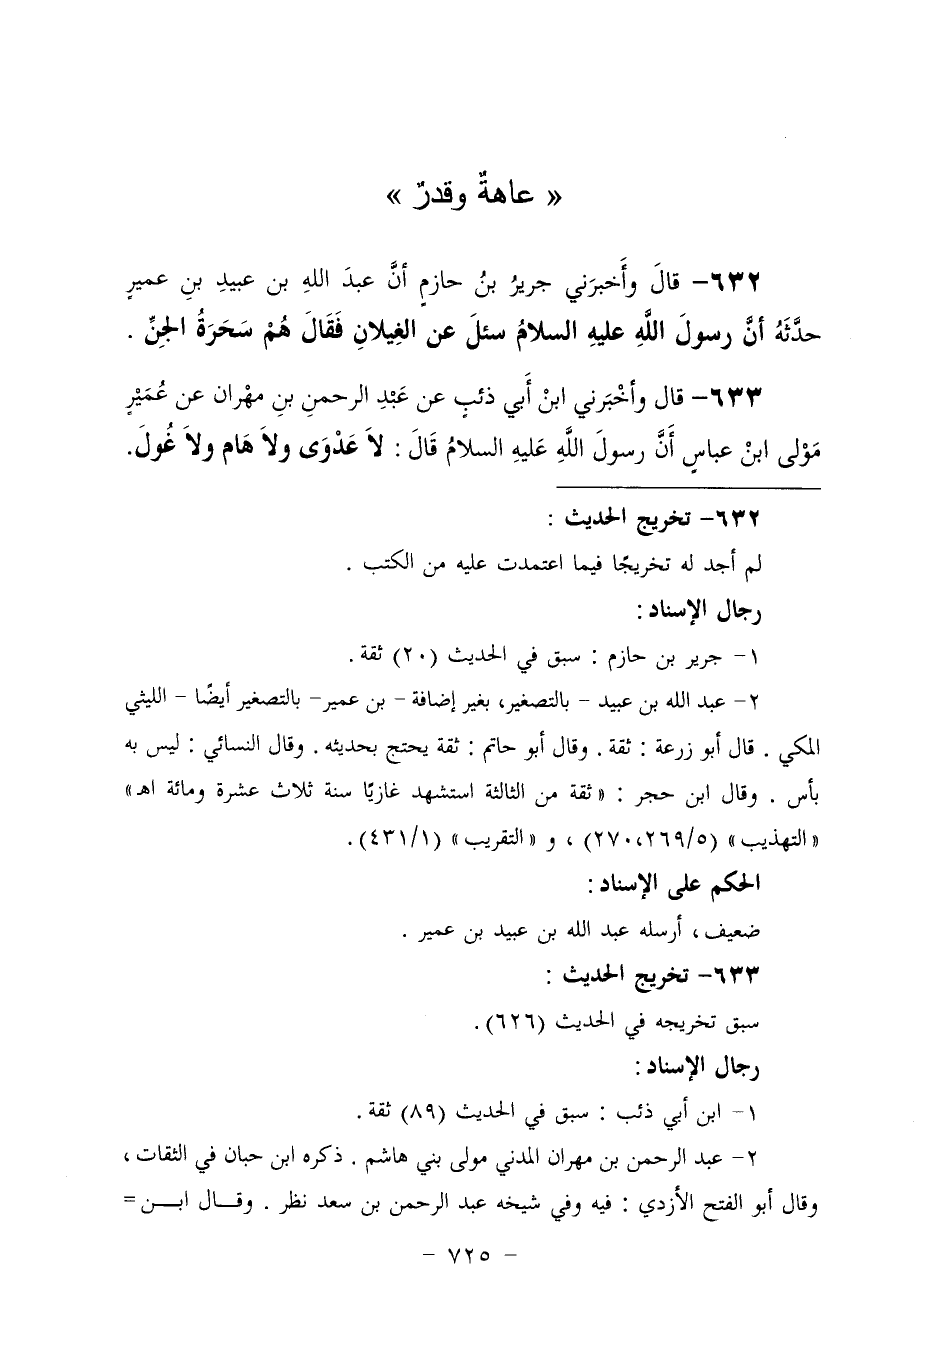 « عاهةٌ وقدرٌ »
٦٣٢- قالَ وأَخبرَني جريرُ بنُ حازمٍ أنَّ عبدَ اللهِ بن عبيدِ بنِ عميرٍ
حدَّثَهُ أنَّ رسولَ اللَّهِ عليهِ السلامُ سئلَ عن الغِيلانِ فَقَالَ هُمْ سَحَرَةُ الجنِّ .
٦٣٣- قال وأخْبَرني ابنْ أَبي ذئبٍ عن عَبْدِ الرحمنِ بنِ مهْران عن عُمَيْرٍ
مَوْلى ابنْ عباسٍ أَنَّ رسولَ اللَّهِ عَليهِ السلامُ قَالَ : لاَ عَدْوَى ولاَ هَام ولاَ غُولَ.
٦٣٢- تخريج الحديث :
لم أجد له تخريجًا فيما اعتمدت عليه من الكتب .
رجال الإسناد :
١- جرير بن حازم : سبق في الحديث (٢٠) ثقة .
٢- عبد الله بن عبيد - بالتصغير، بغير إضافة - بن عمير- بالتصغير أيضًا - الليثي
المكي . قال أبو زرعة : ثقة . وقال أبو حاتم : ثقة يحتج بحديثه . وقال النسائي : ليس به
بأس . وقال ابن حجر : « ثقة من الثالثة استشهد غازيًا سنة ثلاث عشرة ومائة اهـ»
« التهذيب » (٢٧٠،٢٦٩/٥) ، و « التقريب » (٤٣١/١) .
الحكم على الإسناد :
ضعيف ، أرسله عبد الله بن عبيد بن عمير .
٦٣٣- تخريج الحديث :
سبق تخريجه في الحديث (٦٢٦) .
رجال الإسناد :
١- ابن أبي ذئب : سبق في الحديث (٨٩) ثقة .
٢- عبد الرحمن بن مهران المدني مولى بني هاشم . ذكره ابن حبان في الثقات ،
وقال أبو الفتح الأزدي : فيه وفي شيخه عبد الرحمن بن سعد نظر . وقــال ابـــن =
- ٧٢٥ -